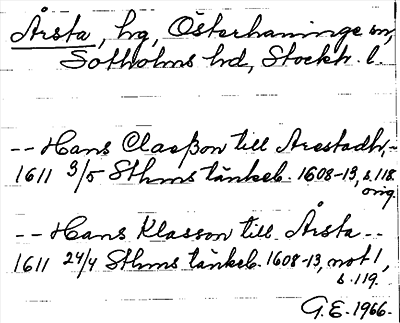 Årsta, hg, Österhaninge sn,
Sotholms hd, Stockh. l.
-- Hans Claeßon till Arestadh, -
1611 3/5 Sthms tänkeb. 1608-13, s. 118
orig.
-- Hans Klasson till Årsta --
1611 24/4 Sthms tänkeb. 1608-13, not 1,
s. 119.
G.E. 1966.